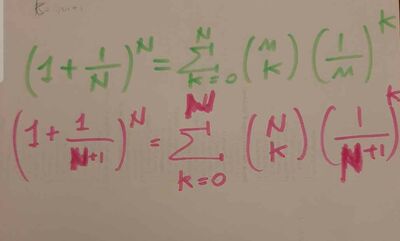 (1 + 1/N)^N = ∑_{k=0}^{N} (n K) (1/n)^K
(1 + 1/N+1)^N = ∑_{k=0}^{N} (N K) (1/N+1)^K